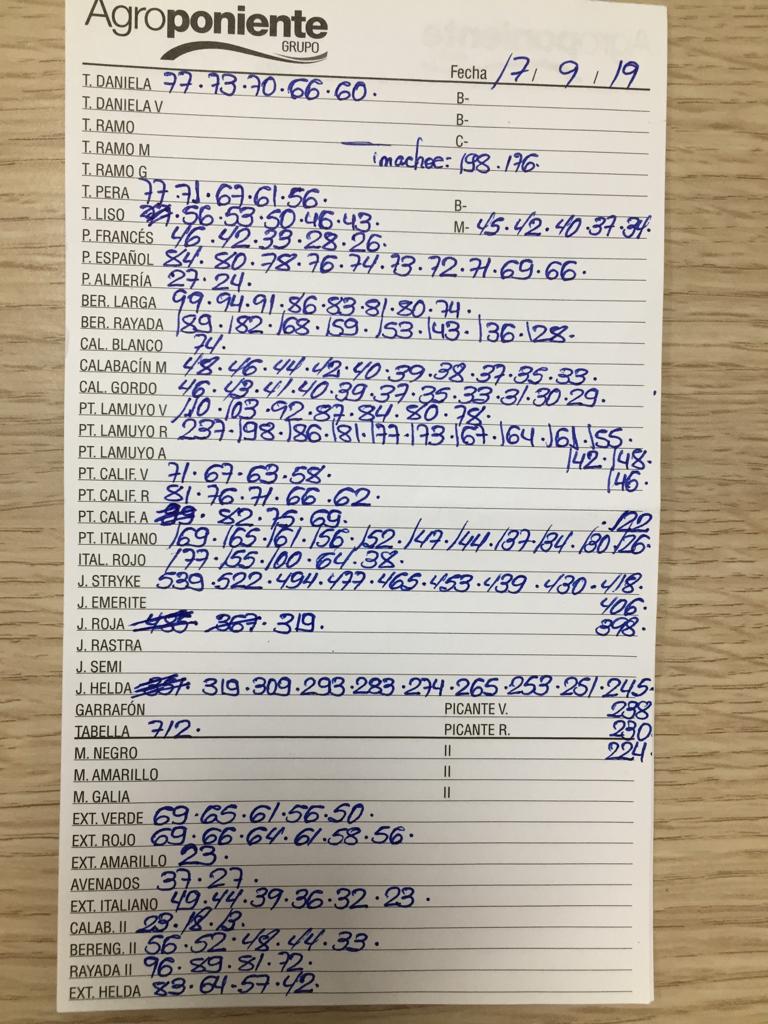 Agroponiente
GRUPO
Fecha 17 / 9 / 19
T. DANIELA 77.73.70.66.60. B-
T. DANIELA V B-
T. RAMO C-
T. RAMO M imachoc: 198.176.
T. RAMO G
T. PERA 77.71.67.61.56. B-
T. LISO 56.53.50.46.43. M- 45.42.40.37.34.
P. FRANCÉS 46.42.33.28.26.
P. ESPAÑOL 84.80.78.76.74.73.72.71.69.66.
P. ALMERÍA 27.24.
BER. LARGA 99.94.91.86.83.81.80.74.
BER. RAYADA 189.182.168.159.153.143.136.128.
CAL. BLANCO 74.
CALABACÍN M 48.46.44.42.40.39.38.37.35.33.
CAL. GORDO 46.43.41.40.39.37.35.33.31.30.29.
PT. LAMUYO V 110.103.92.87.84.80.78.
PT. LAMUYO R 237.198.186.181.177.173.167.164.161.155.
PT. LAMUYO A 142.148.
PT. CALIF. V 71.67.63.58. 146.
PT. CALIF. R 81.76.71.66.62.
PT. CALIF. A 82.75.69. 122
PT. ITALIANO 169.165.161.156.152.147.144.137.134.130.126.
ITAL. ROJO 177.155.100.64.38.
J. STRYKE 539.522.494.477.465.453.439.430.418.
J. EMERITE 406.
J. ROJA 485 367. 319. 398.
J. RASTRA
J. SEMI
J. HELDA 319.309.293.283.274.265.253.251.245.
GARRAFÓN PICANTE V. 238
TABELLA 712. PICANTE R. 230
M. NEGRO II 224.
M. AMARILLO II
M. GALIA II
EXT. VERDE 69.65.61.56.50.
EXT. ROJO 69.66.64.61.58.56.
EXT. AMARILLO 23.
AVENADOS 37.27.
EXT. ITALIANO 49.44.39.36.32.23.
CALAB. II 23.18.13.
BERENG. II 56.52.48.44.33.
RAYADA II 96.89.81.72.
EXT. HELDA 83.64.57.42.